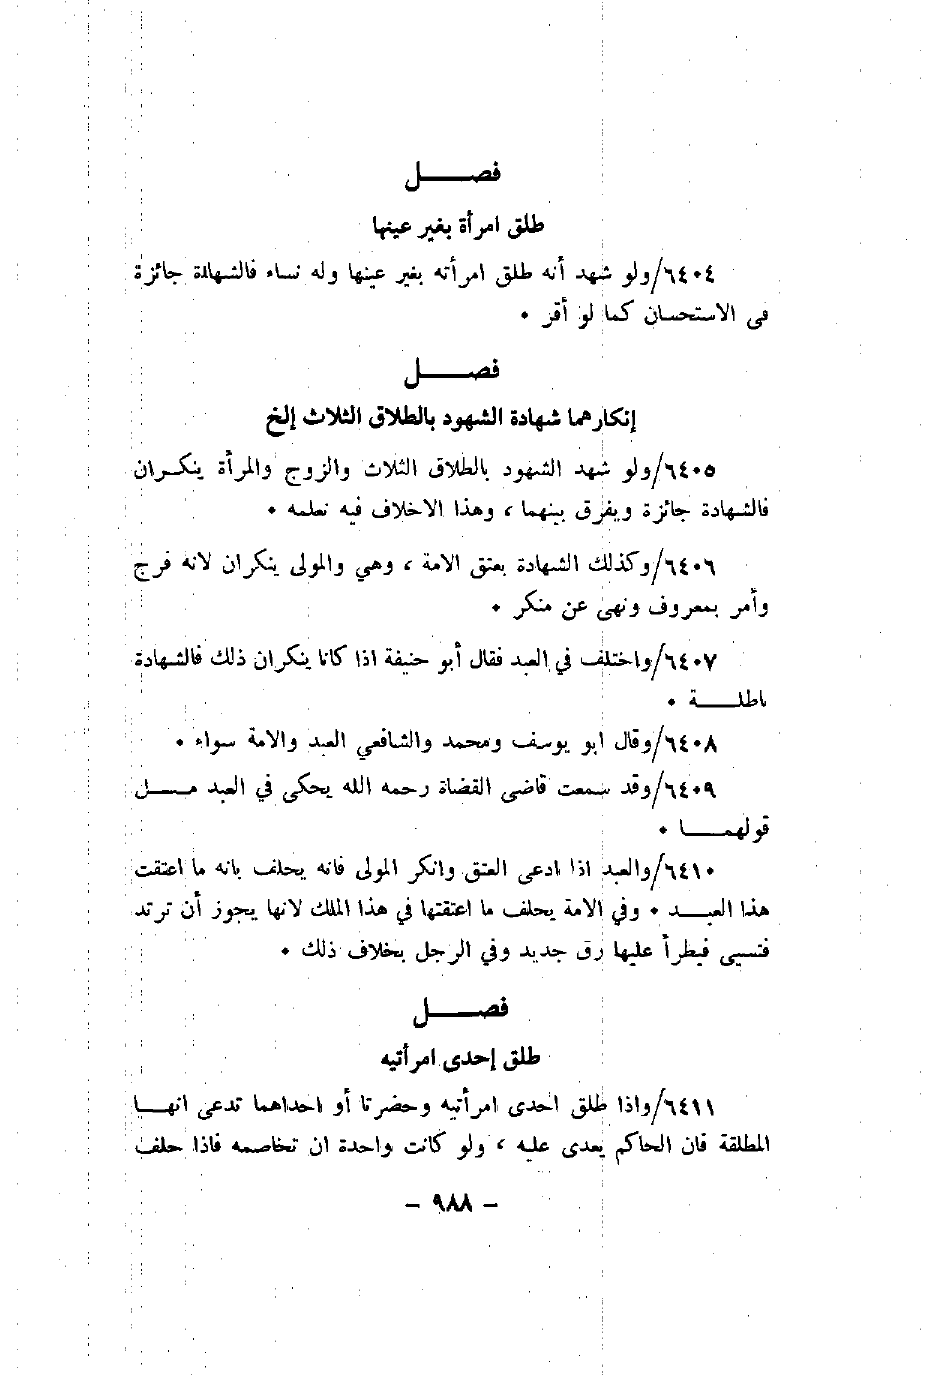 فصــــــل
طلق امرأة بغير عينها
٦٤٠٤/ولو شهد أنه طلق امرأته بغير عينها وله نساء فالشهادة جائزة
فى الاستحسان كما لو أقر ٠
فصــــــل
إنكارهما شهادة الشهود بالطلاق الثلاث إلخ
٦٤٠٥/ولو شهد الشهود بالطلاق الثلاث والزوج والمرأة ينكــران
فالشهادة جائزة ويفرق بينهما ، وهذا الاخلاف فيه نعلمه ٠
٦٤٠٦/وكذلك الشهادة بعتق الامة ، وهي والمولى ينكران لانه فرج
وأمر بمعروف ونهى عن منكر ٠
٦٤٠٧/واختلف في العبد فقال أبو حنيفة اذا كانا ينكران ذلك فالشهادة
باطلــــــة ٠
٦٤٠٨/وقال ابو يوسف ومحمد والشافعي العبد والامة سواء ٠
٦٤٠٩/وقد سمعت قاضى القضاة رحمه الله يحكى في العبد مــــل
قولهمــــا ٠
٦٤١٠/والعبد اذا ادعى العتق وانكر المولى فانه يحلف بانه ما اعتقت
هذا العبــــد ٠ وفي الامة يحلف ما اعتقتها في هذا الملك لانها يجوز أن ترتد
فتسبى فيطرأ عليها رق جديد وفي الرجل بخلاف ذلك ٠
فصــــــل
طلق إحدى امرأتيه
٦٤١١/واذا طلق احدى امرأتيه وحضرتا أو احداهما تدعى انهــا
المطلقة فان الحاكم يعدى عليه ، ولو كانت واحدة ان تخاصمه فاذا حلف
– ٩٨٨ –